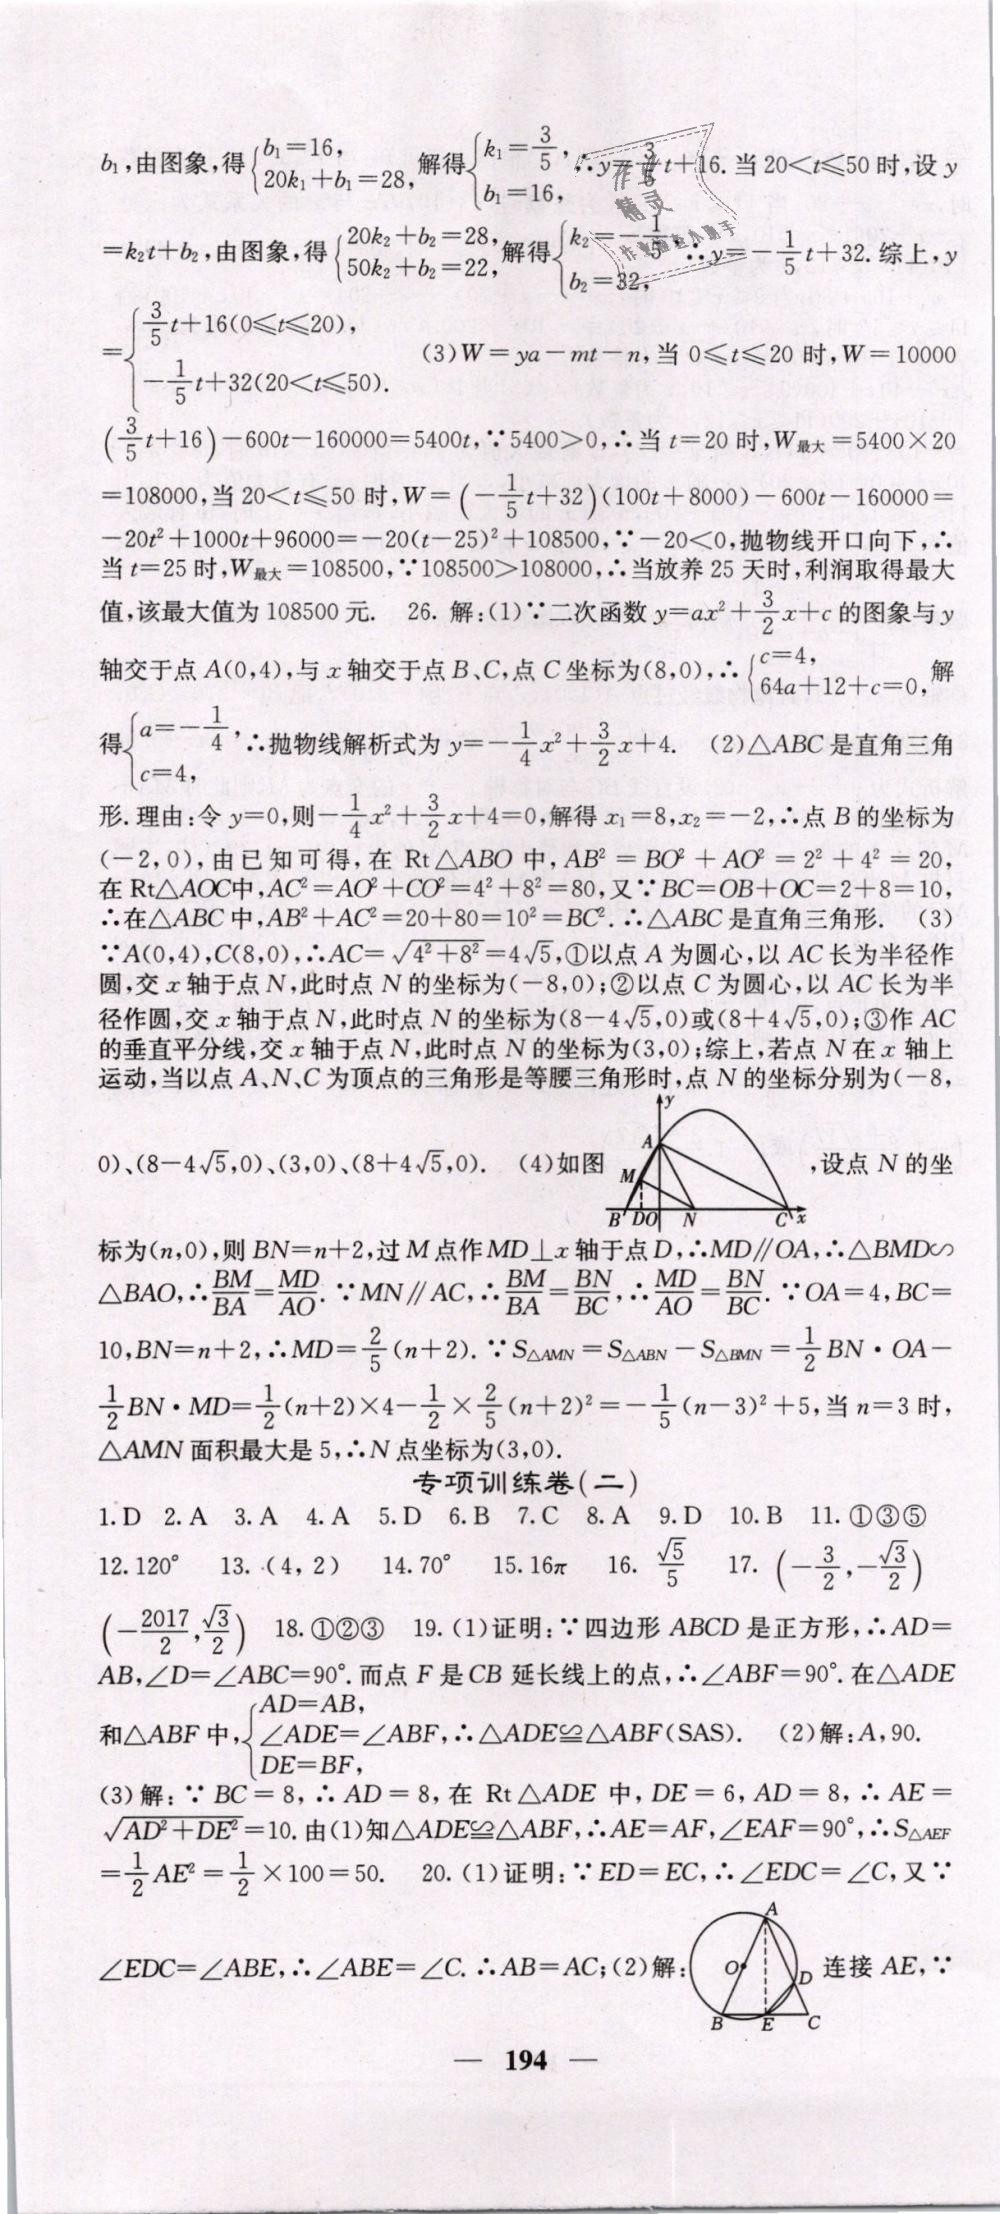 b₁,由图象,得{b₁=16, 20k₁+b₁=28, 解得{k₁=3/5, b₁=16, ∴y=3/5t+16.当20<t≤50时,设y
=k₂t+b₂,由图象,得{20k₂+b₂=28, 50k₂+b₂=22, 解得{k₂=-1/5, b₂=32, ∴y=-1/5t+32.综上,y
={3/5t+16(0≤t≤20), -1/5t+32(20<t≤50). (3)W=ya-mt-n,当0≤t≤20时,W=10000
(3/5t+16)-600t-160000=5400t,∵5400>0,∴当t=20时,W最大=5400×20
=108000,当20<t≤50时,W=(-1/5t+32)(100t+8000)-600t-160000=
-20t²+1000t+96000=-20(t-25)²+108500,∵-20<0,抛物线开口向下,∴
当t=25时,W最大=108500,∵108500>108000,∴当放养25天时,利润取得最大
值,该最大值为108500元. 26. 解:(1)∵二次函数y=ax²+3/2x+c的图象与y
轴交于点A(0,4),与x轴交于点B、C,点C坐标为(8,0),∴{c=4, 64a+12+c=0, 解
得{a=-1/4, c=4, ∴抛物线解析式为y=-1/4x²+3/2x+4. (2)△ABC是直角三角
形.理由:令y=0,则-1/4x²+3/2x+4=0,解得x₁=8,x₂=-2,∴点B的坐标为
(-2,0),由已知可得,在Rt△ABO中,AB²=BO²+AO²=2²+4²=20,
在Rt△AOC中,AC²=AO²+CO²=4²+8²=80,又∵BC=OB+OC=2+8=10,
∴在△ABC中,AB²+AC²=20+80=10²=BC².∴△ABC是直角三角形. (3)
∵A(0,4),C(8,0),∴AC=√(4²+8²)=4√5,①以点A为圆心,以AC长为半径作
圆,交x轴于点N,此时点N的坐标为(-8,0);②以点C为圆心,以AC长为半
径作圆,交x轴于点N,此时点N的坐标为(8-4√5,0)或(8+4√5,0);③作AC
的垂直平分线,交x轴于点N,此时点N的坐标为(3,0);综上,若点N在x轴上
运动,当以点A、N、C为顶点的三角形是等腰三角形时,点N的坐标分别为(-8,
0)、(8-4√5,0)、(3,0)、(8+4√5,0). (4)如图 y A M B D O N C x ,设点N的坐
标为(n,0),则BN=n+2,过M点作MD⊥x轴于点D,∴MD∥OA,∴△BMD∽
△BAO,∴BM/BA=MD/AO.∵MN∥AC,∴BM/BA=BN/BC,∴MD/AO=BN/BC.∵OA=4,BC=
10,BN=n+2,∴MD=2/5(n+2).∵S△AMN=S△ABN-S△BMN=1/2BN·OA-
1/2BN·MD=1/2(n+2)×4-1/2×2/5(n+2)²=-1/5(n-3)²+5,当n=3时,
△AMN面积最大是5,∴N点坐标为(3,0).
专项训练卷(二)
1.D 2.A 3.A 4.A 5.D 6.B 7.C 8.A 9.D 10.B 11.①③⑤
12.120° 13.(4,2) 14.70° 15.16π 16.√5/5 17.(-3/2,-√3/2)
(-2017/2,√3/2) 18.①②③ 19.(1)证明:∵四边形ABCD是正方形,∴AD=
AB,∠D=∠ABC=90°.而点F是CB延长线上的点,∴∠ABF=90°.在△ADE
和△ABF中,{AD=AB, ∠ADE=∠ABF, DE=BF, ∴△ADE≌△ABF(SAS). (2)解:A,90.
(3)解:∵BC=8,∴AD=8,在Rt△ADE中,DE=6,AD=8,∴AE=
√(AD²+DE²)=10.由(1)知△ADE≌△ABF,∴AE=AF,∠EAF=90°,∴S△AEF
=1/2AE²=1/2×100=50. 20.(1)证明:∵ED=EC,∴∠EDC=∠C,又∵
∠EDC=∠ABE,∴∠ABE=∠C.∴AB=AC;(2)解: A O D B E C 连接AE,∵
— 194 —
作业
精灵